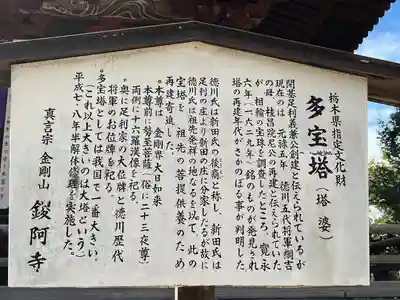 栃木県指定文化財
多宝塔(塔婆)
開基足利義兼公創建と伝えられているが
現在のは元禄五年 徳川五代将軍綱吉
の母 桂昌院尼公の再建と伝えられていた
が 相輪の宝珠を調査したところ、寛永
六年(一六二九年)銘のものが発見され
塔の再建年代がさかのぼる事が判明した
徳川氏は新田氏の後裔と称し 新田氏は
足利の庄より新田の庄に分家したるが故に
徳川氏は祖先発祥の地なるを以て、此の
宝塔を 祖先の菩提供養のため
再建寄進した
*本尊は 金剛界大日如来
本尊前に勢至菩薩(俗に二十三夜尊)
両側に十六羅漢像を祀る。
*奥に足利家の大位牌と徳川歴代
将軍のお位牌を祀る
*多宝塔としては我国で一番大きい。
(これ以上大きいのは大塔という)
平成七・八年半解体修理を実施した。
真言宗 金剛山 鑁阿寺